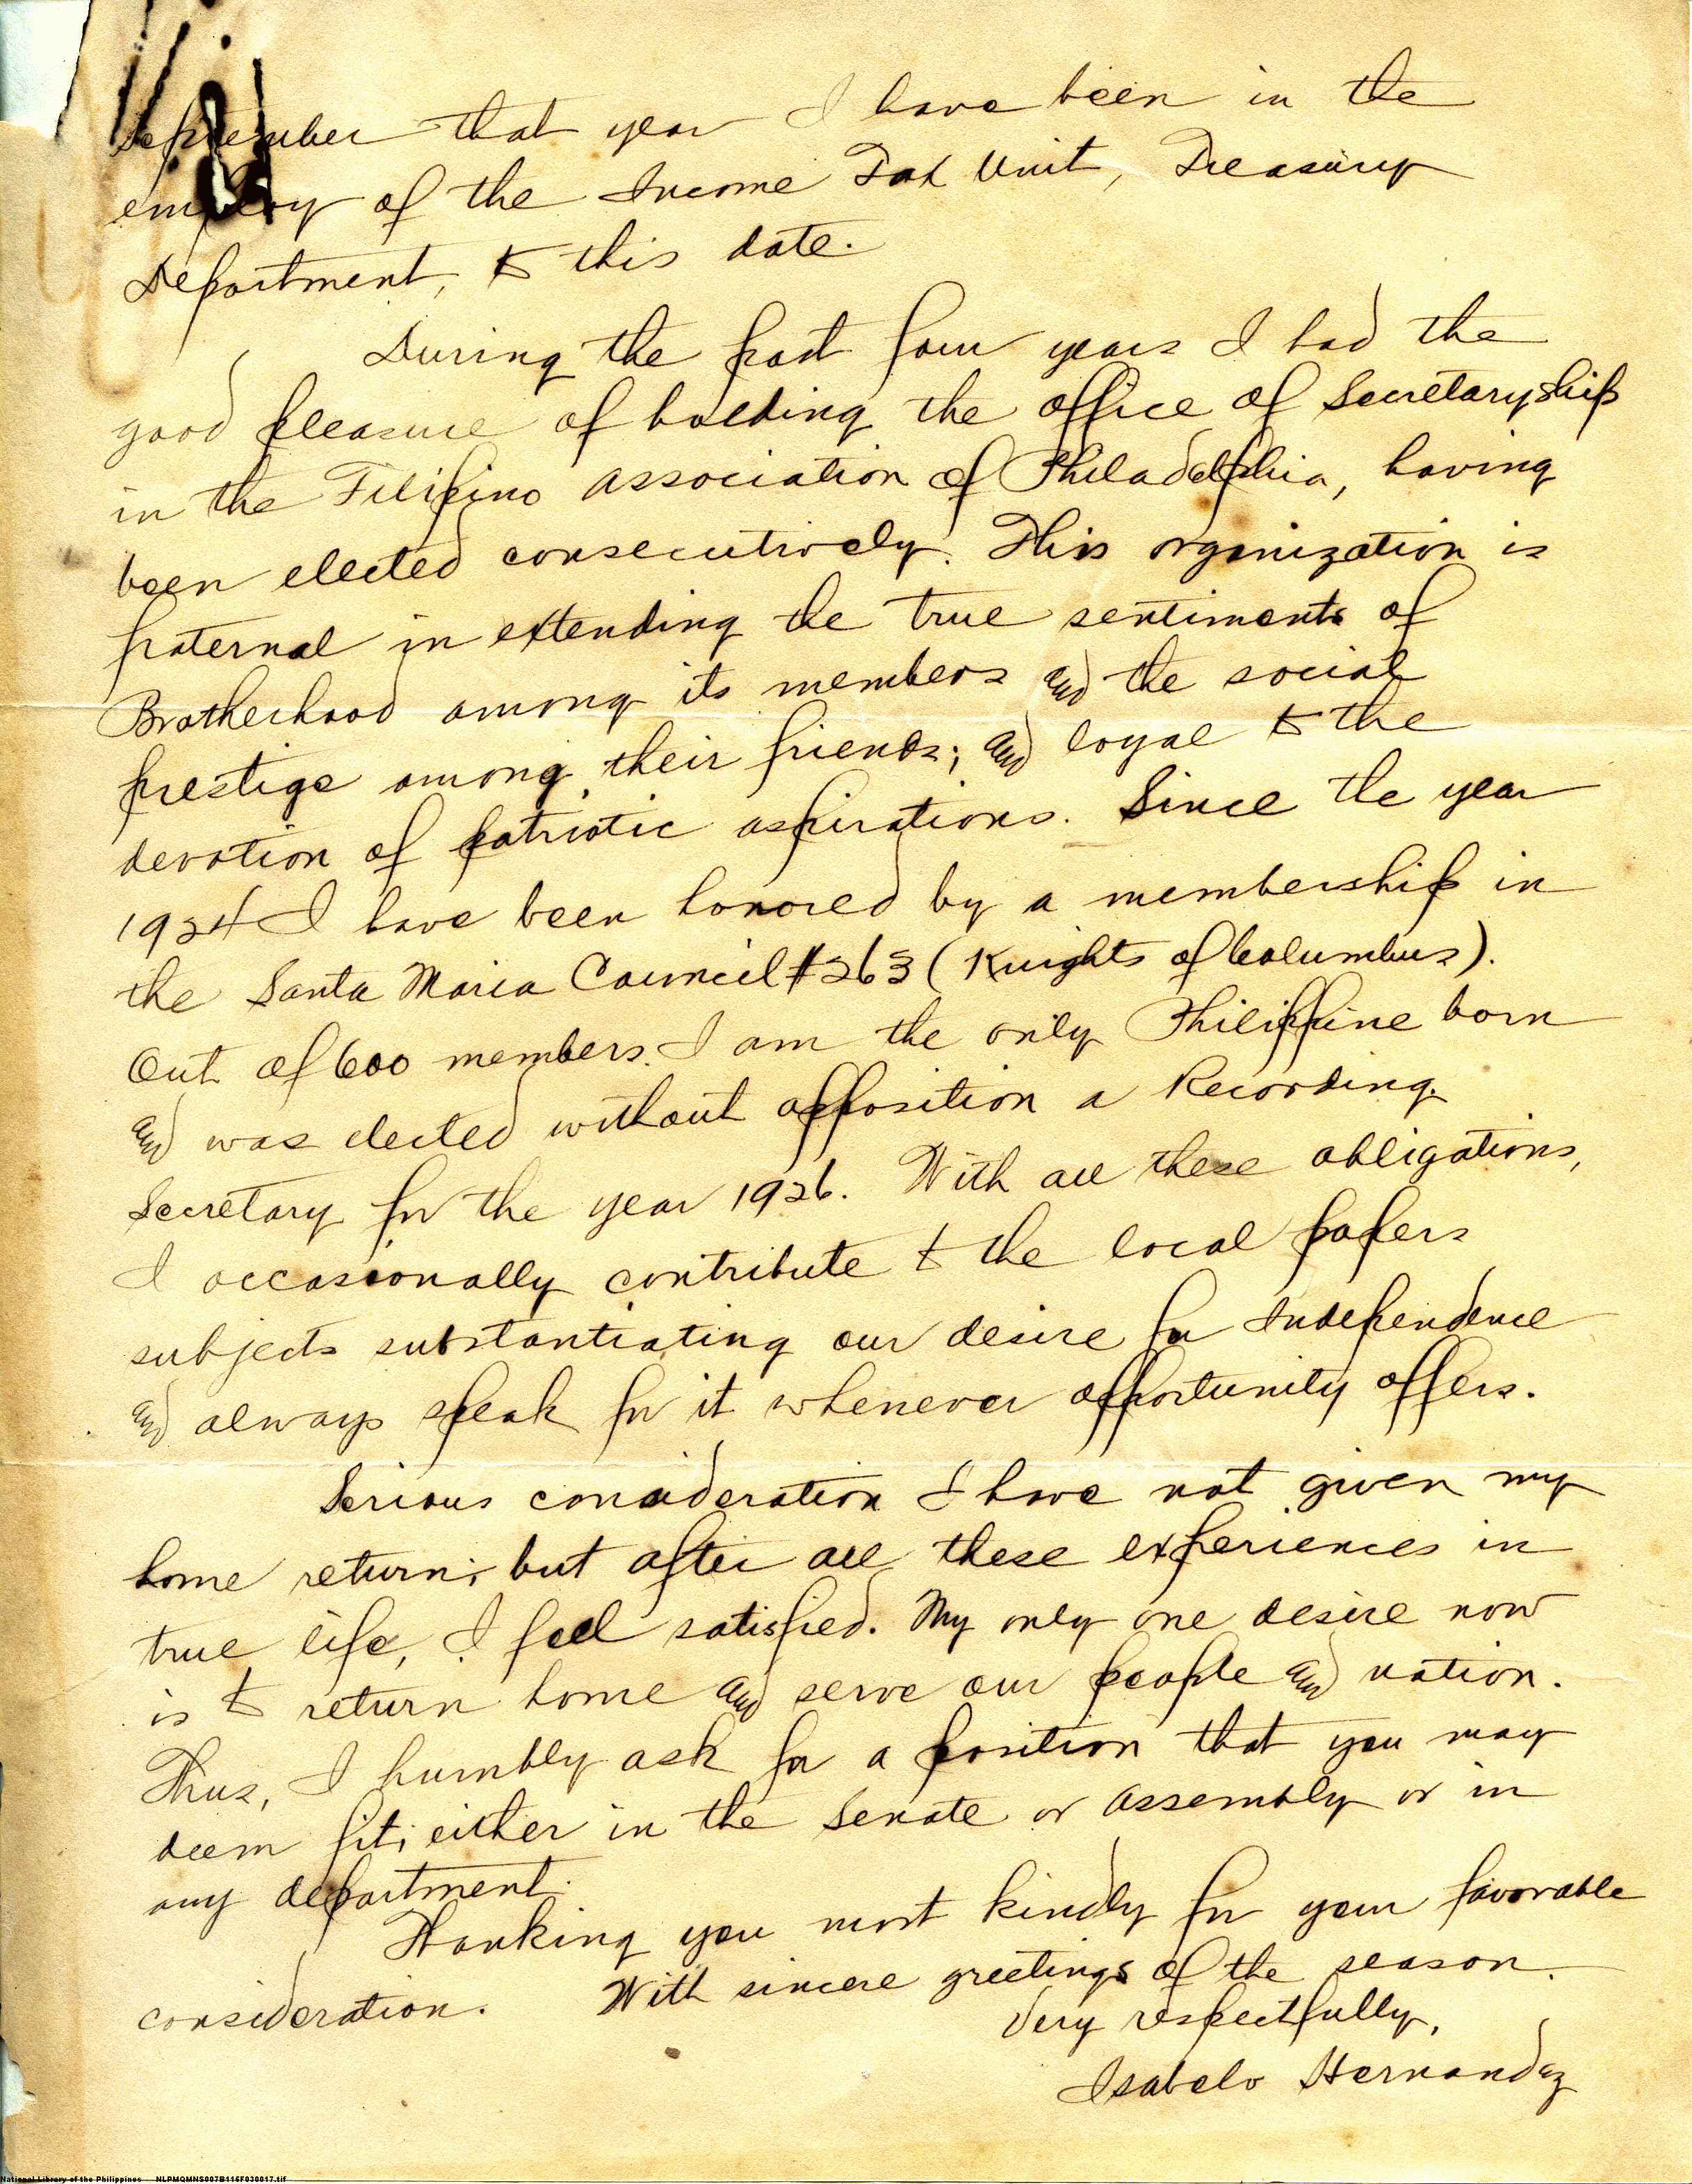 September that year I have been in the
employ of the Income Tax Unit, Treasury
Department, to this date.
During the past four years I had the
good pleasure of holding the office of Secretaryship
in the Filipino Association of Philadelphia, having
been elected consecutively. This organization is
fraternal in extending the true sentiments of
Brotherhood among its members and the social
prestige among their friends; and loyal to the
devotion of patriotic aspirations. Since the year
1924 I have been honored by a membership in
the Santa Maria Council #263 (Knights of Columbus).
Out of 600 members I am the only Philippine born
and was elected without opposition a Recording
Secretary for the year 1926. With all these obligations,
I occasionally contribute to the local papers
subjects substantiating our desire for Independence
and always speak for it whenever opportunity offers.
Serious consideration I have not given my
home return; but after all these experiences in
true life, I feel satisfied. My only one desire now
is to return home and serve our people and nation.
Thus, I humbly ask for a position that you may
deem fit; either in the Senate or Assembly or in
any department.
Thanking you most kindly for your favorable
consideration. With sincere greetings of the season.
Very respectfully,
Isabelo Hernandez
National Library of the Philippines NLPMQMNS007B116F030017.tif